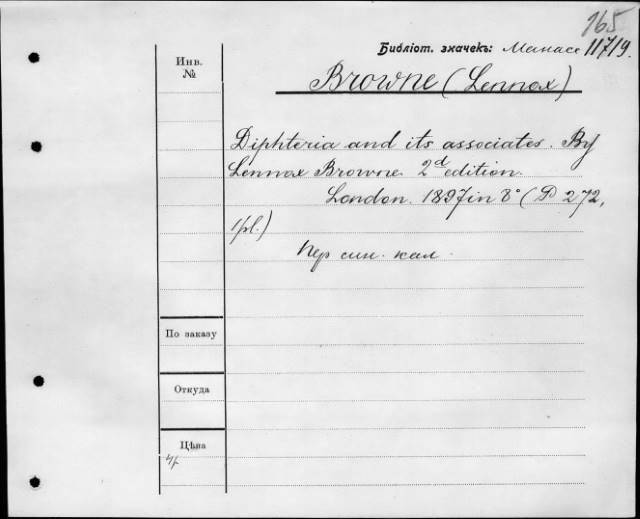 165
Библіот. значекъ: Манасе 11719.
Инв.
№
Browne (Lennox)
Diphteria and its associates. By
Lennox Browne. 2d edition.
London. 1897 in 8° ( 272,
1 pl.)
Пер син. кал.
По заказу
Откуда
Цѣна